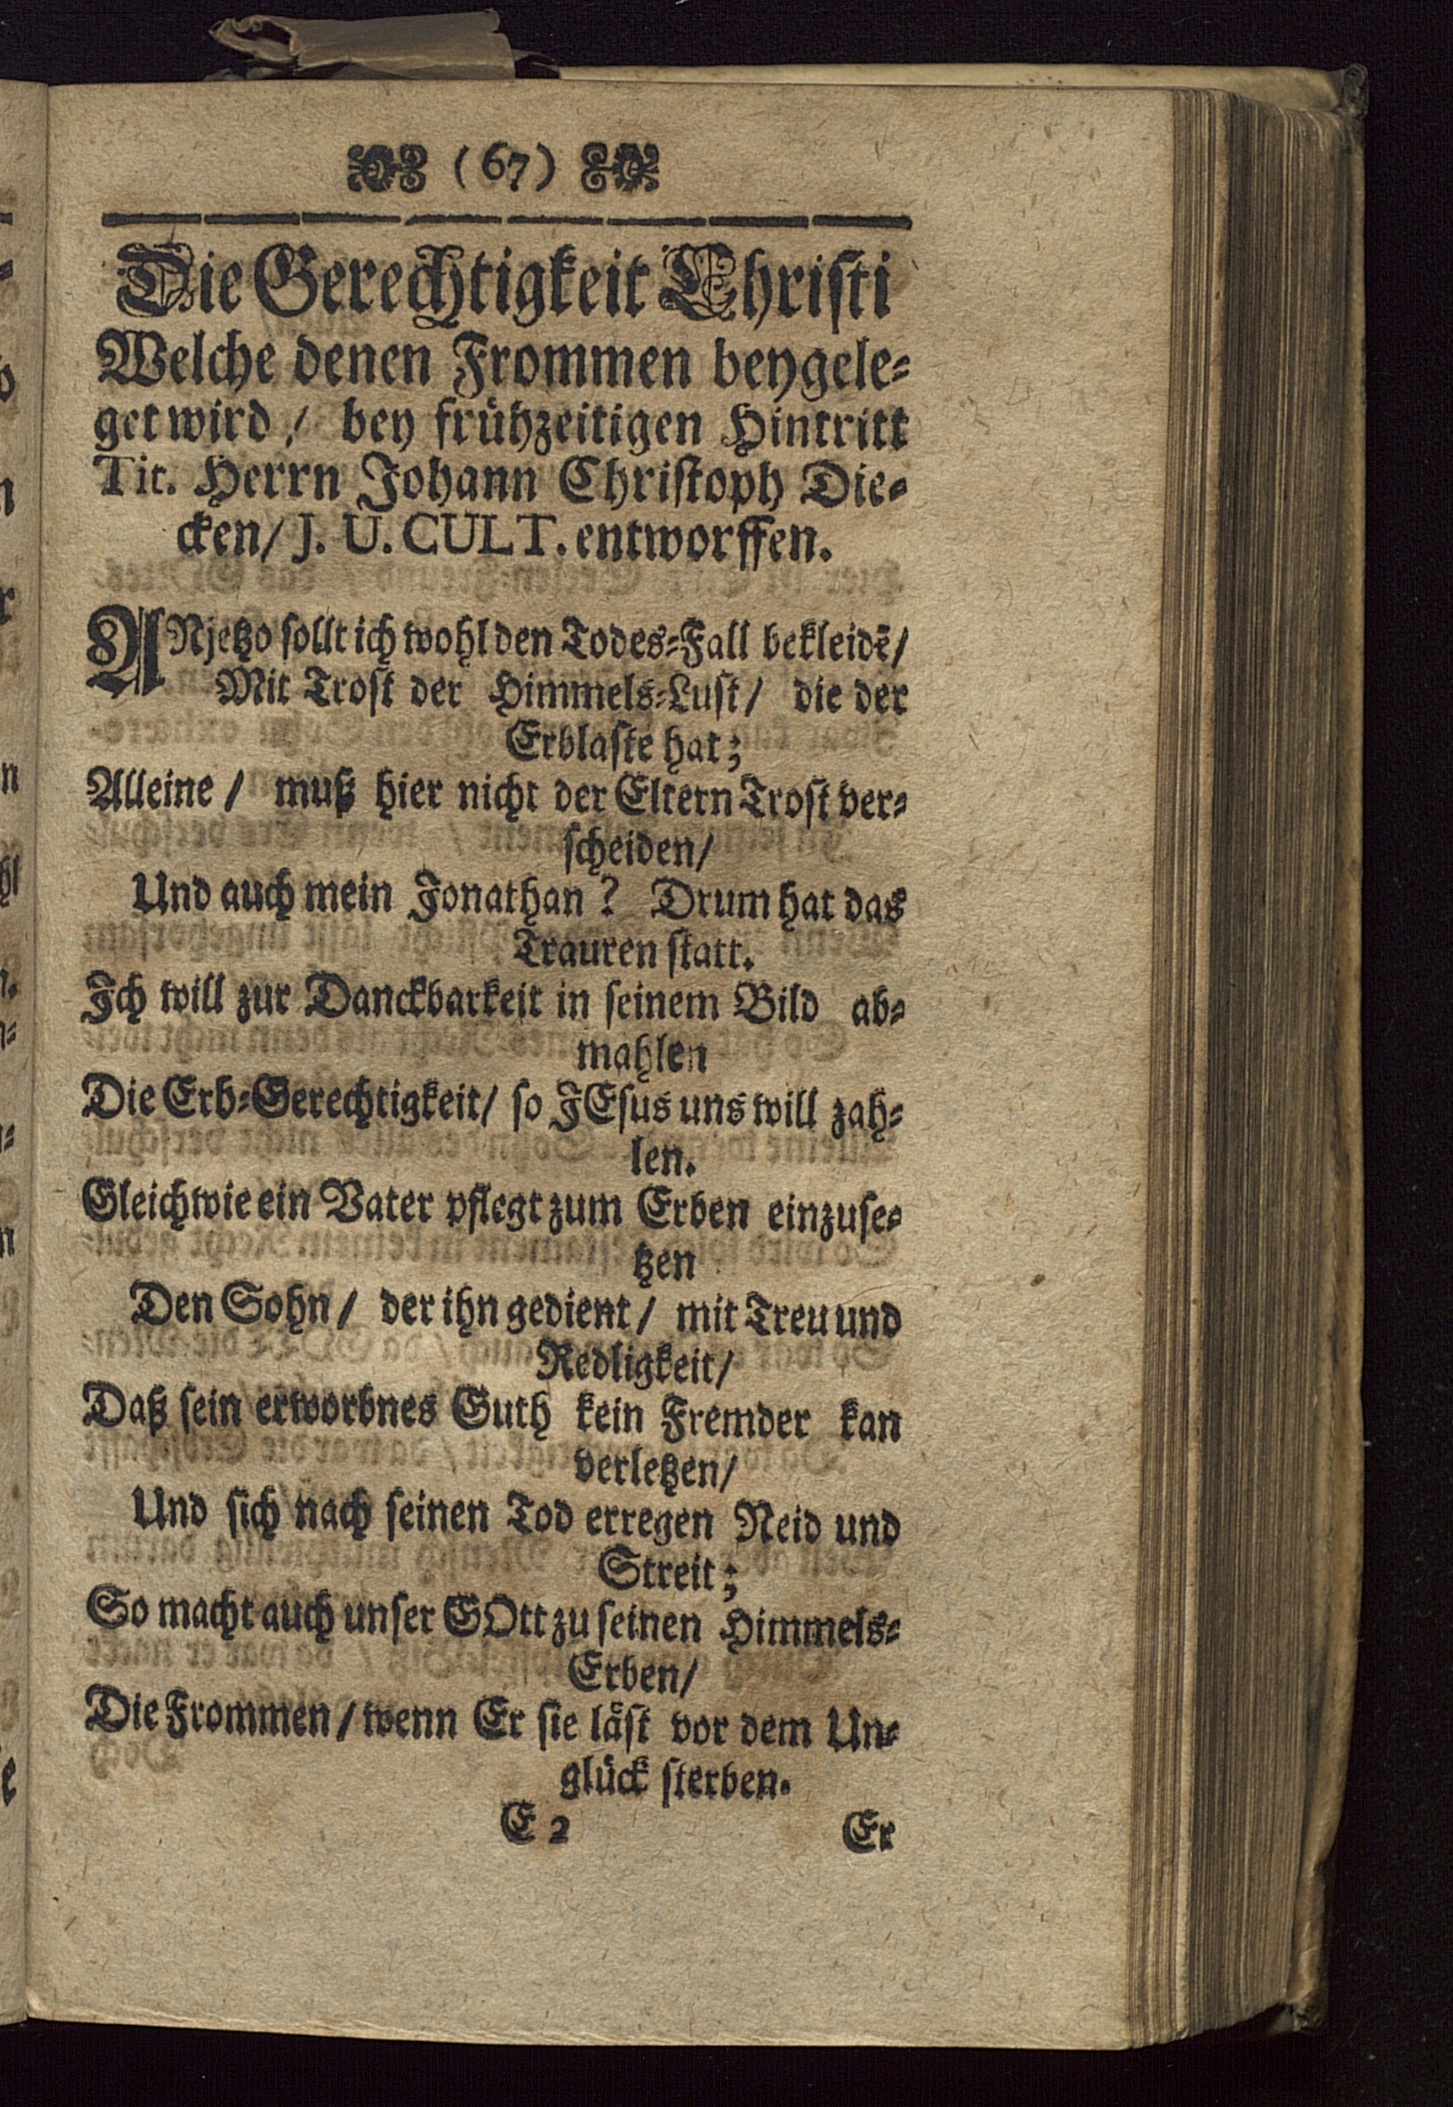 (67)
Die Gerechtigkeit Christi
Welche denen Frommen beygele-
get wird / bey frühzeitigen Hintritt
Tit. Herrn Johann Christoph Die-
cken / J. U. CULT. entworffen.
ANjetzo sollt ich wohl den Todes-Fall bekleidē /
Mit Trost der Himmels-Lust / die der
Erblaste hat;
Alleine / muß hier nicht der Eltern Trost ver-
scheiden /
Und auch mein Jonathan? Drum hat das
Trauren statt.
Ich will zur Danckbarkeit in seinem Bild ab-
mahlen
Die Erb-Gerechtigkeit / so JEsus uns will zah-
len.
Gleichwie ein Vater pflegt zum Erben einzuse-
tzen
Den Sohn / der ihn gedient / mit Treu und
Redligkeit /
Daß sein erworbnes Guth kein Fremder kan
verletzen /
Und sich nach seinen Tod erregen Neid und
Streit;
So macht auch unser GOtt zu seinen Himmels-
Erben /
Die Frommen / wenn Er sie läst vor dem Un-
glück sterben.
E 2 Er